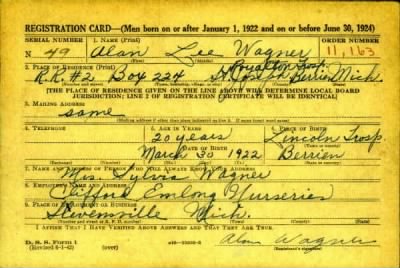 REGISTRATION CARD—(Men born on or after January 1, 1922 and on or before June 30, 1924)
SERIAL NUMBER 1. NAME (Print) ORDER NUMBER
N 49 Alan Lee Wagner 11,163
(First) (Middle) (Last)
2. PLACE OF RESIDENCE (Print) Royalton Twsp.
R.R.#2, Box 224 St. Joseph Berrien Mich.
[THE PLACE OF RESIDENCE GIVEN ON THE LINE ABOVE WILL DETERMINE LOCAL BOARD
JURISDICTION; LINE 2 OF REGISTRATION CERTIFICATE WILL BE IDENTICAL]
3. MAILING ADDRESS
same
4. TELEPHONE 5. AGE IN YEARS
20 years Lincoln Twsp
DATE OF BIRTH
March 30 1922 Berrien
7. NAME AND ADDRESS OF PERSON WHO WILL ALWAYS KNOW YOUR ADDRESS
Mrs. Sylvia Wagner
8. EMPLOYER'S NAME AND ADDRESS
Clifford Emlong Nurseries
Stevensville Mich.
I AFFIRM THAT I HAVE VERIFIED ABOVE ANSWERS AND THAT THEY ARE TRUE.
D. S. S. Form 1 (over) Alan Wagner